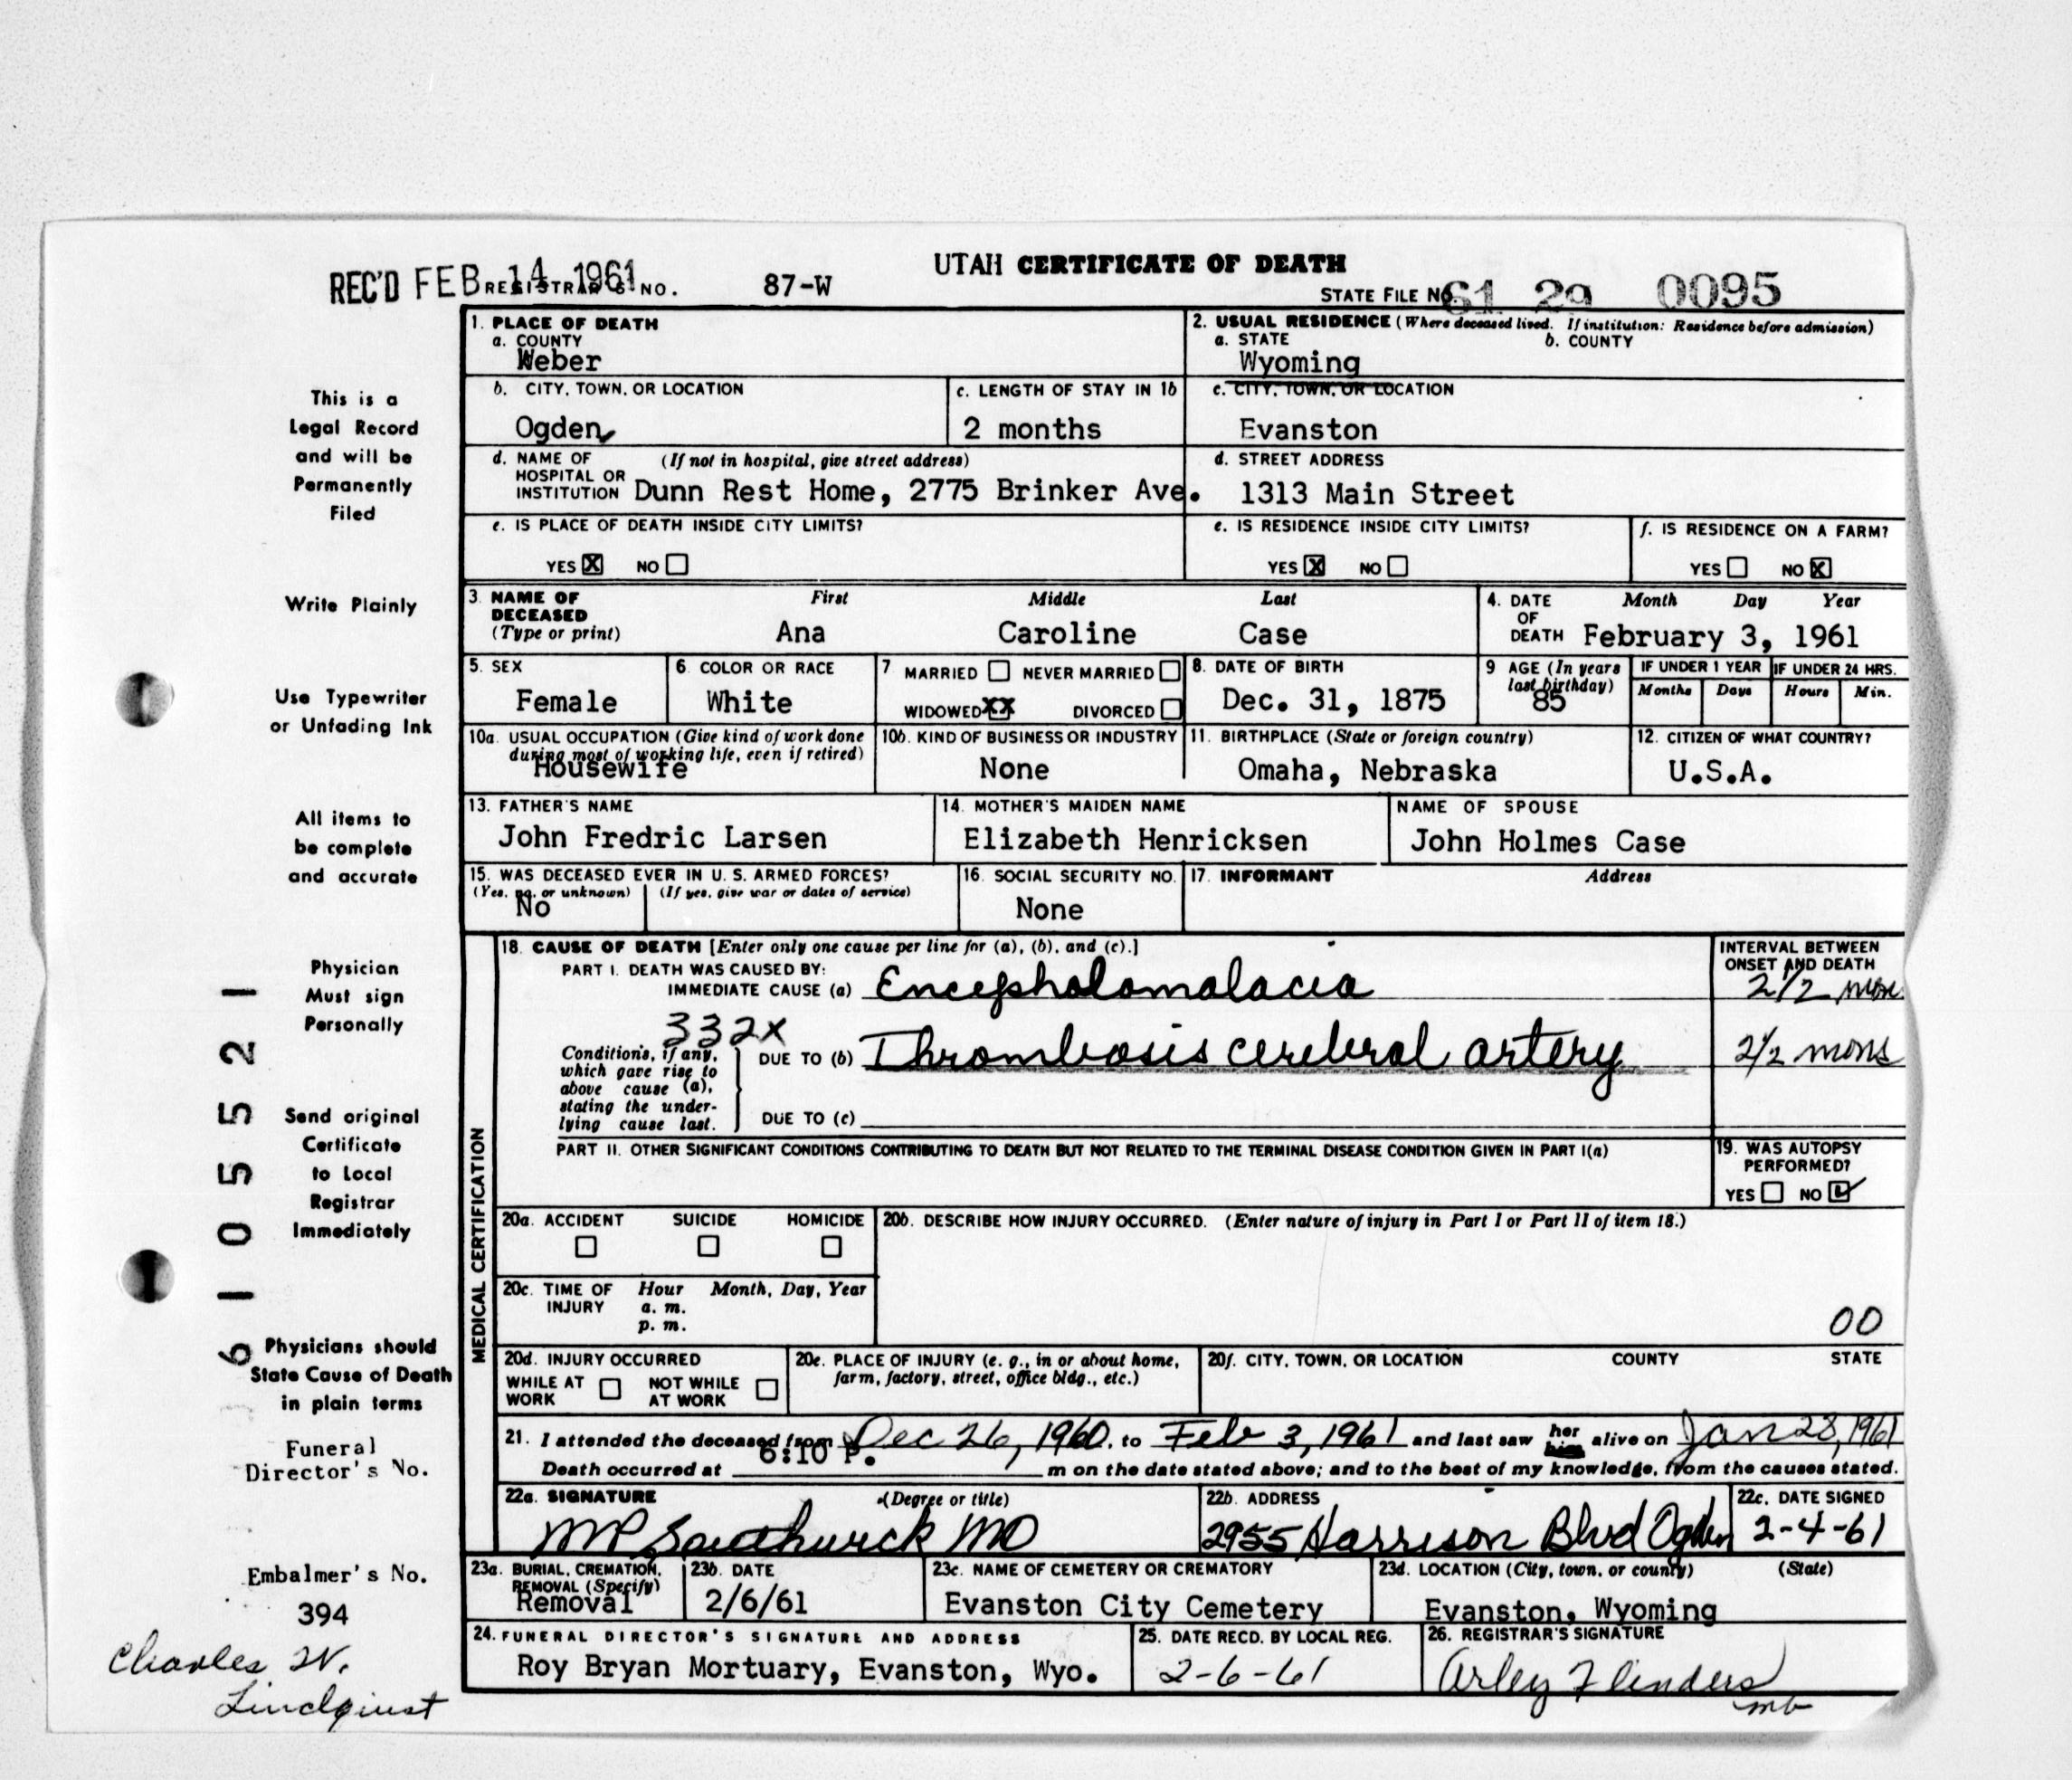 UTAH CERTIFICATE OF DEATH
REC'D FEB 14 1961 REGISTRAR'S NO. 87-W STATE FILE NO. 61 29 0095
1. PLACE OF DEATH
a. COUNTY
Weber
2. USUAL RESIDENCE (Where deceased lived. If institution: Residence before admission)
a. STATE b. COUNTY
Wyoming
b. CITY, TOWN, OR LOCATION
Ogden
c. LENGTH OF STAY IN 1b
2 months
c. CITY, TOWN, OR LOCATION
Evanston
d. NAME OF (If not in hospital, give street address)
HOSPITAL OR
INSTITUTION Dunn Rest Home, 2775 Brinker Ave.
d. STREET ADDRESS
1313 Main Street
e. IS PLACE OF DEATH INSIDE CITY LIMITS?
YES X NO
e. IS RESIDENCE INSIDE CITY LIMITS?
YES X NO
f. IS RESIDENCE ON A FARM?
YES NO X
3. NAME OF First Middle Last
DECEASED
(Type or print) Ana Caroline Case
4. DATE Month Day Year
OF
DEATH February 3, 1961
5. SEX
Female
6. COLOR OR RACE
White
7 MARRIED NEVER MARRIED
WIDOWED XX DIVORCED
8. DATE OF BIRTH
Dec. 31, 1875
9 AGE (In years
last birthday)
85
IF UNDER 1 YEAR IF UNDER 24 HRS.
Months Days Hours Min.
10a. USUAL OCCUPATION (Give kind of work done
during most of working life, even if retired)
Housewife
10b. KIND OF BUSINESS OR INDUSTRY
None
11. BIRTHPLACE (State or foreign country)
Omaha, Nebraska
12. CITIZEN OF WHAT COUNTRY?
U.S.A.
13. FATHER'S NAME
John Fredric Larsen
14. MOTHER'S MAIDEN NAME
Elizabeth Henricksen
NAME OF SPOUSE
John Holmes Case
15. WAS DECEASED EVER IN U. S. ARMED FORCES?
(Yes, no, or unknown) (If yes, give war or dates of service)
No
16. SOCIAL SECURITY NO.
None
17. INFORMANT Address
MEDICAL CERTIFICATION
18. CAUSE OF DEATH [Enter only one cause per line for (a), (b), and (c).]
PART I. DEATH WAS CAUSED BY:
IMMEDIATE CAUSE (a) Encephalomalacia
INTERVAL BETWEEN
ONSET AND DEATH
2 1/2 mon
332X
Conditions, if any,
which gave rise to
above cause (a),
stating the under-
lying cause last.
DUE TO (b) Thrombosis cerebral artery 2 1/2 mons
DUE TO (c)
PART II. OTHER SIGNIFICANT CONDITIONS CONTRIBUTING TO DEATH BUT NOT RELATED TO THE TERMINAL DISEASE CONDITION GIVEN IN PART I(a)
19. WAS AUTOPSY
PERFORMED?
YES NO
20a. ACCIDENT SUICIDE HOMICIDE
20b. DESCRIBE HOW INJURY OCCURRED. (Enter nature of injury in Part I or Part II of item 18.)
20c. TIME OF Hour Month, Day, Year
INJURY a. m.
p. m.
00
20d. INJURY OCCURRED
WHILE AT NOT WHILE
WORK AT WORK
20e. PLACE OF INJURY (e. g., in or about home,
farm, factory, street, office bldg., etc.)
20f. CITY, TOWN, OR LOCATION COUNTY STATE
21. I attended the deceased from Dec 26, 1960, to Feb 3, 1961 and last saw her him alive on Jan 28, 1961
Death occurred at 6:10 P. m on the date stated above; and to the best of my knowledge, from the causes stated.
22a. SIGNATURE (Degree or title)
MP Southwick MD
22b. ADDRESS
2955 Harrison Blvd Ogden
22c. DATE SIGNED
2-4-61
23a. BURIAL, CREMATION,
REMOVAL (Specify)
Removal
23b. DATE
2/6/61
23c. NAME OF CEMETERY OR CREMATORY
Evanston City Cemetery
23d. LOCATION (City, town, or county) (State)
Evanston, Wyoming
24. FUNERAL DIRECTOR'S SIGNATURE AND ADDRESS
Roy Bryan Mortuary, Evanston, Wyo.
25. DATE RECD. BY LOCAL REG.
2-6-61
26. REGISTRAR'S SIGNATURE
Arley Flinders
mb
This is a
Legal Record
and will be
Permanently
Filed
Write Plainly
Use Typewriter
or Unfading Ink
All items to
be complete
and accurate
Physician
Must sign
Personally
Send original
Certificate
to Local
Registrar
Immediately
Physicians should
State Cause of Death
in plain terms
6105521
Funeral
Director's No.
Embalmer's No.
394
Charles W.
Lindquist